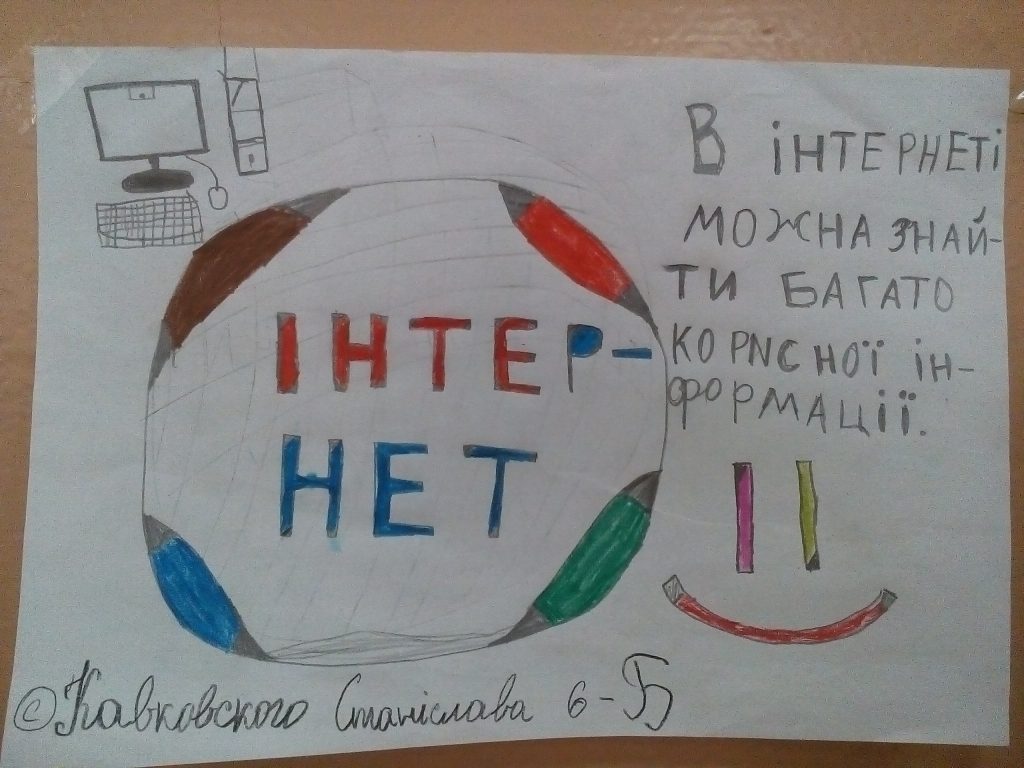 ІНТЕР-
НЕТ
В ІНТЕРНЕТІ
МОЖНА ЗНАЙ-
ТИ БАГАТО
КОРИСНОЇ ІН-
ФОРМАЦІЇ.
©Кавковского Станіслава 6-Б